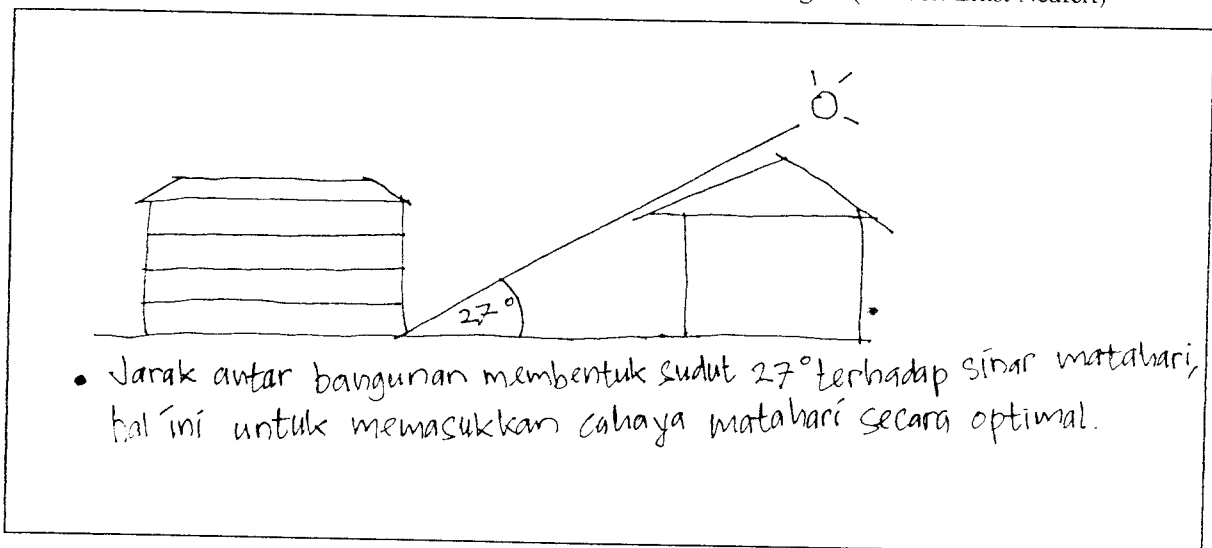 27°
• Jarak antar bangunan membentuk sudut 27° terhadap sinar matahari,
hal ini untuk memasukkan cahaya matahari secara optimal.